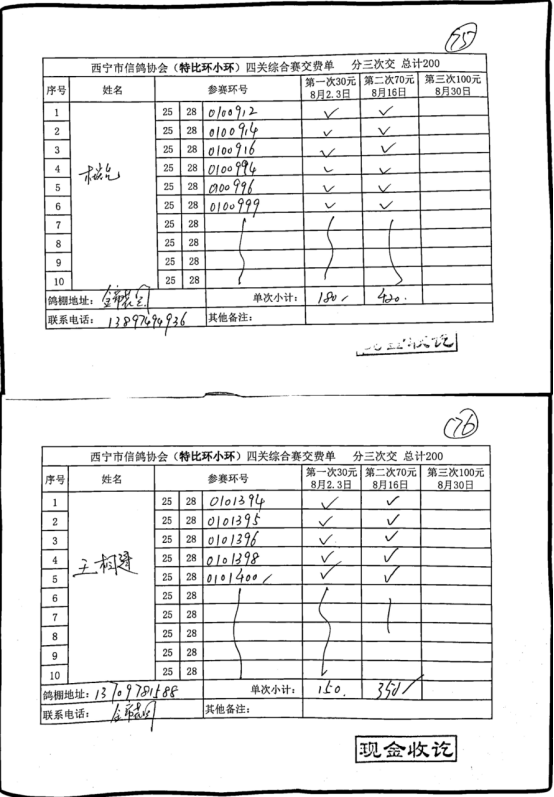 75
西宁市信鸽协会（特比环小环）四关综合赛交费单 分三次交 总计200
序号 姓名 参赛环号 第一次30元 8月2.3日 第二次70元 8月16日 第三次100元 8月30日
1 25 28 0100912 ✓ ✓
2 25 28 0100914 ✓ ✓
3 25 28 0100916 ✓ ✓
4 25 28 0100994 ✓ ✓
5 25 28 0100996 ✓ ✓
6 25 28 0100999 ✓ ✓
7 25 28
8 25 28
9 25 28
10 25 28
鸽棚地址： 单次小计： 180 420.
联系电话：13897494936 其他备注：
收讫
176
西宁市信鸽协会（特比环小环）四关综合赛交费单 分三次交 总计200
序号 姓名 参赛环号 第一次30元 8月2.3日 第二次70元 8月16日 第三次100元 8月30日
1 25 28 0101394 ✓ ✓
2 25 28 0101395 ✓ ✓
3 25 28 0101396 ✓ ✓
4 王 25 28 0101398 ✓ ✓
5 25 28 0101400 ✓ ✓
6 25 28
7 25 28
8 25 28
9 25 28
10 25 28
鸽棚地址：13709781588 单次小计： 150. 350
联系电话： 其他备注：
现金收讫